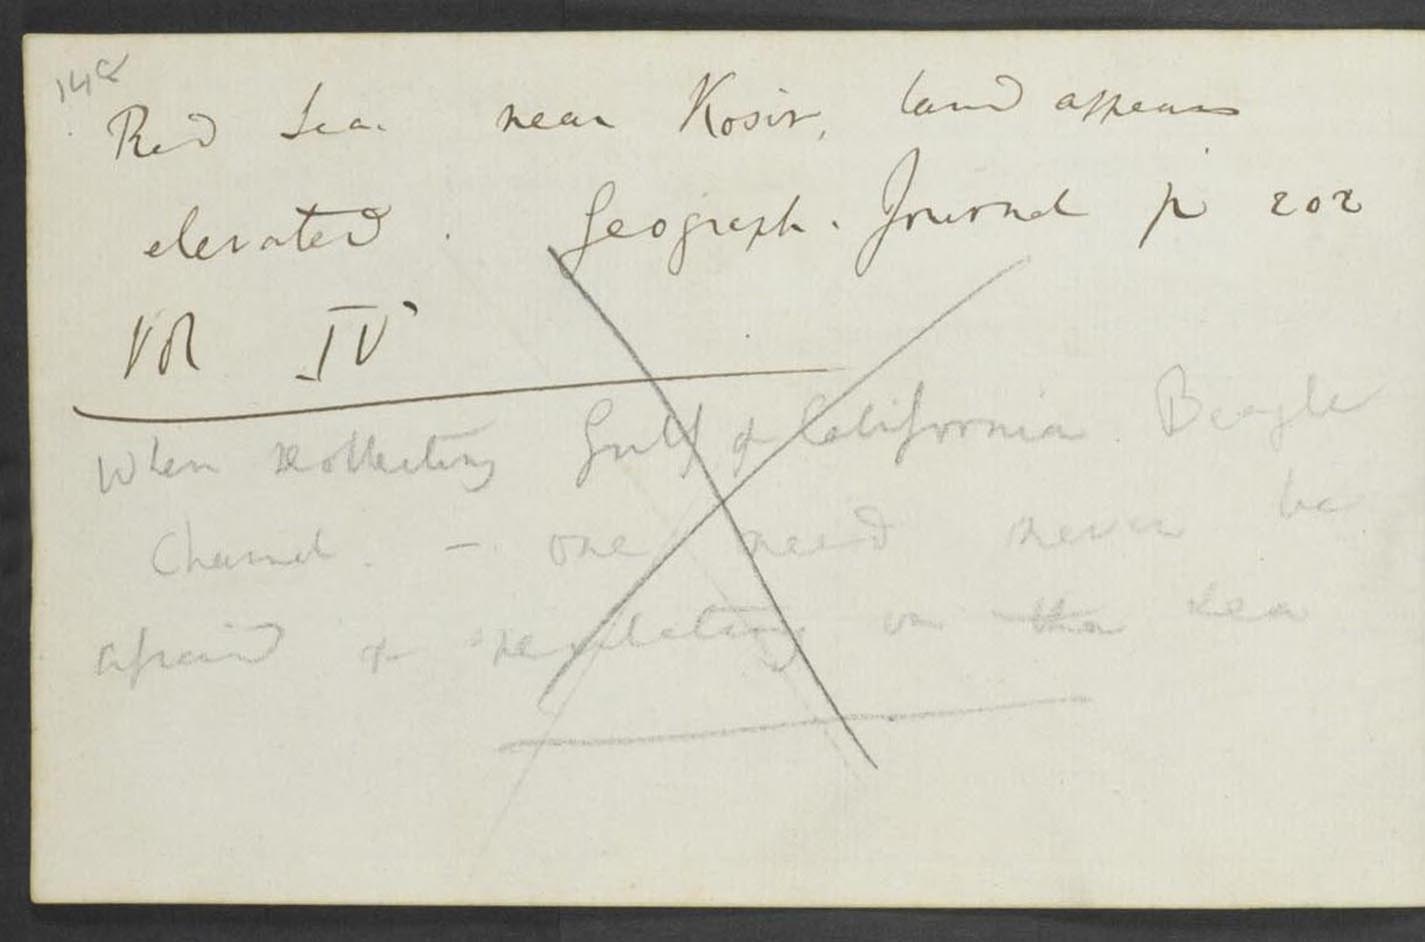 148
Red Sea. near Kosir, land appears
elevated. Geograph. Journal p 202
Vol IV
When recollecting Gulf of California. Beagle
Channel. — one need never be
afraid of speculating on the sea